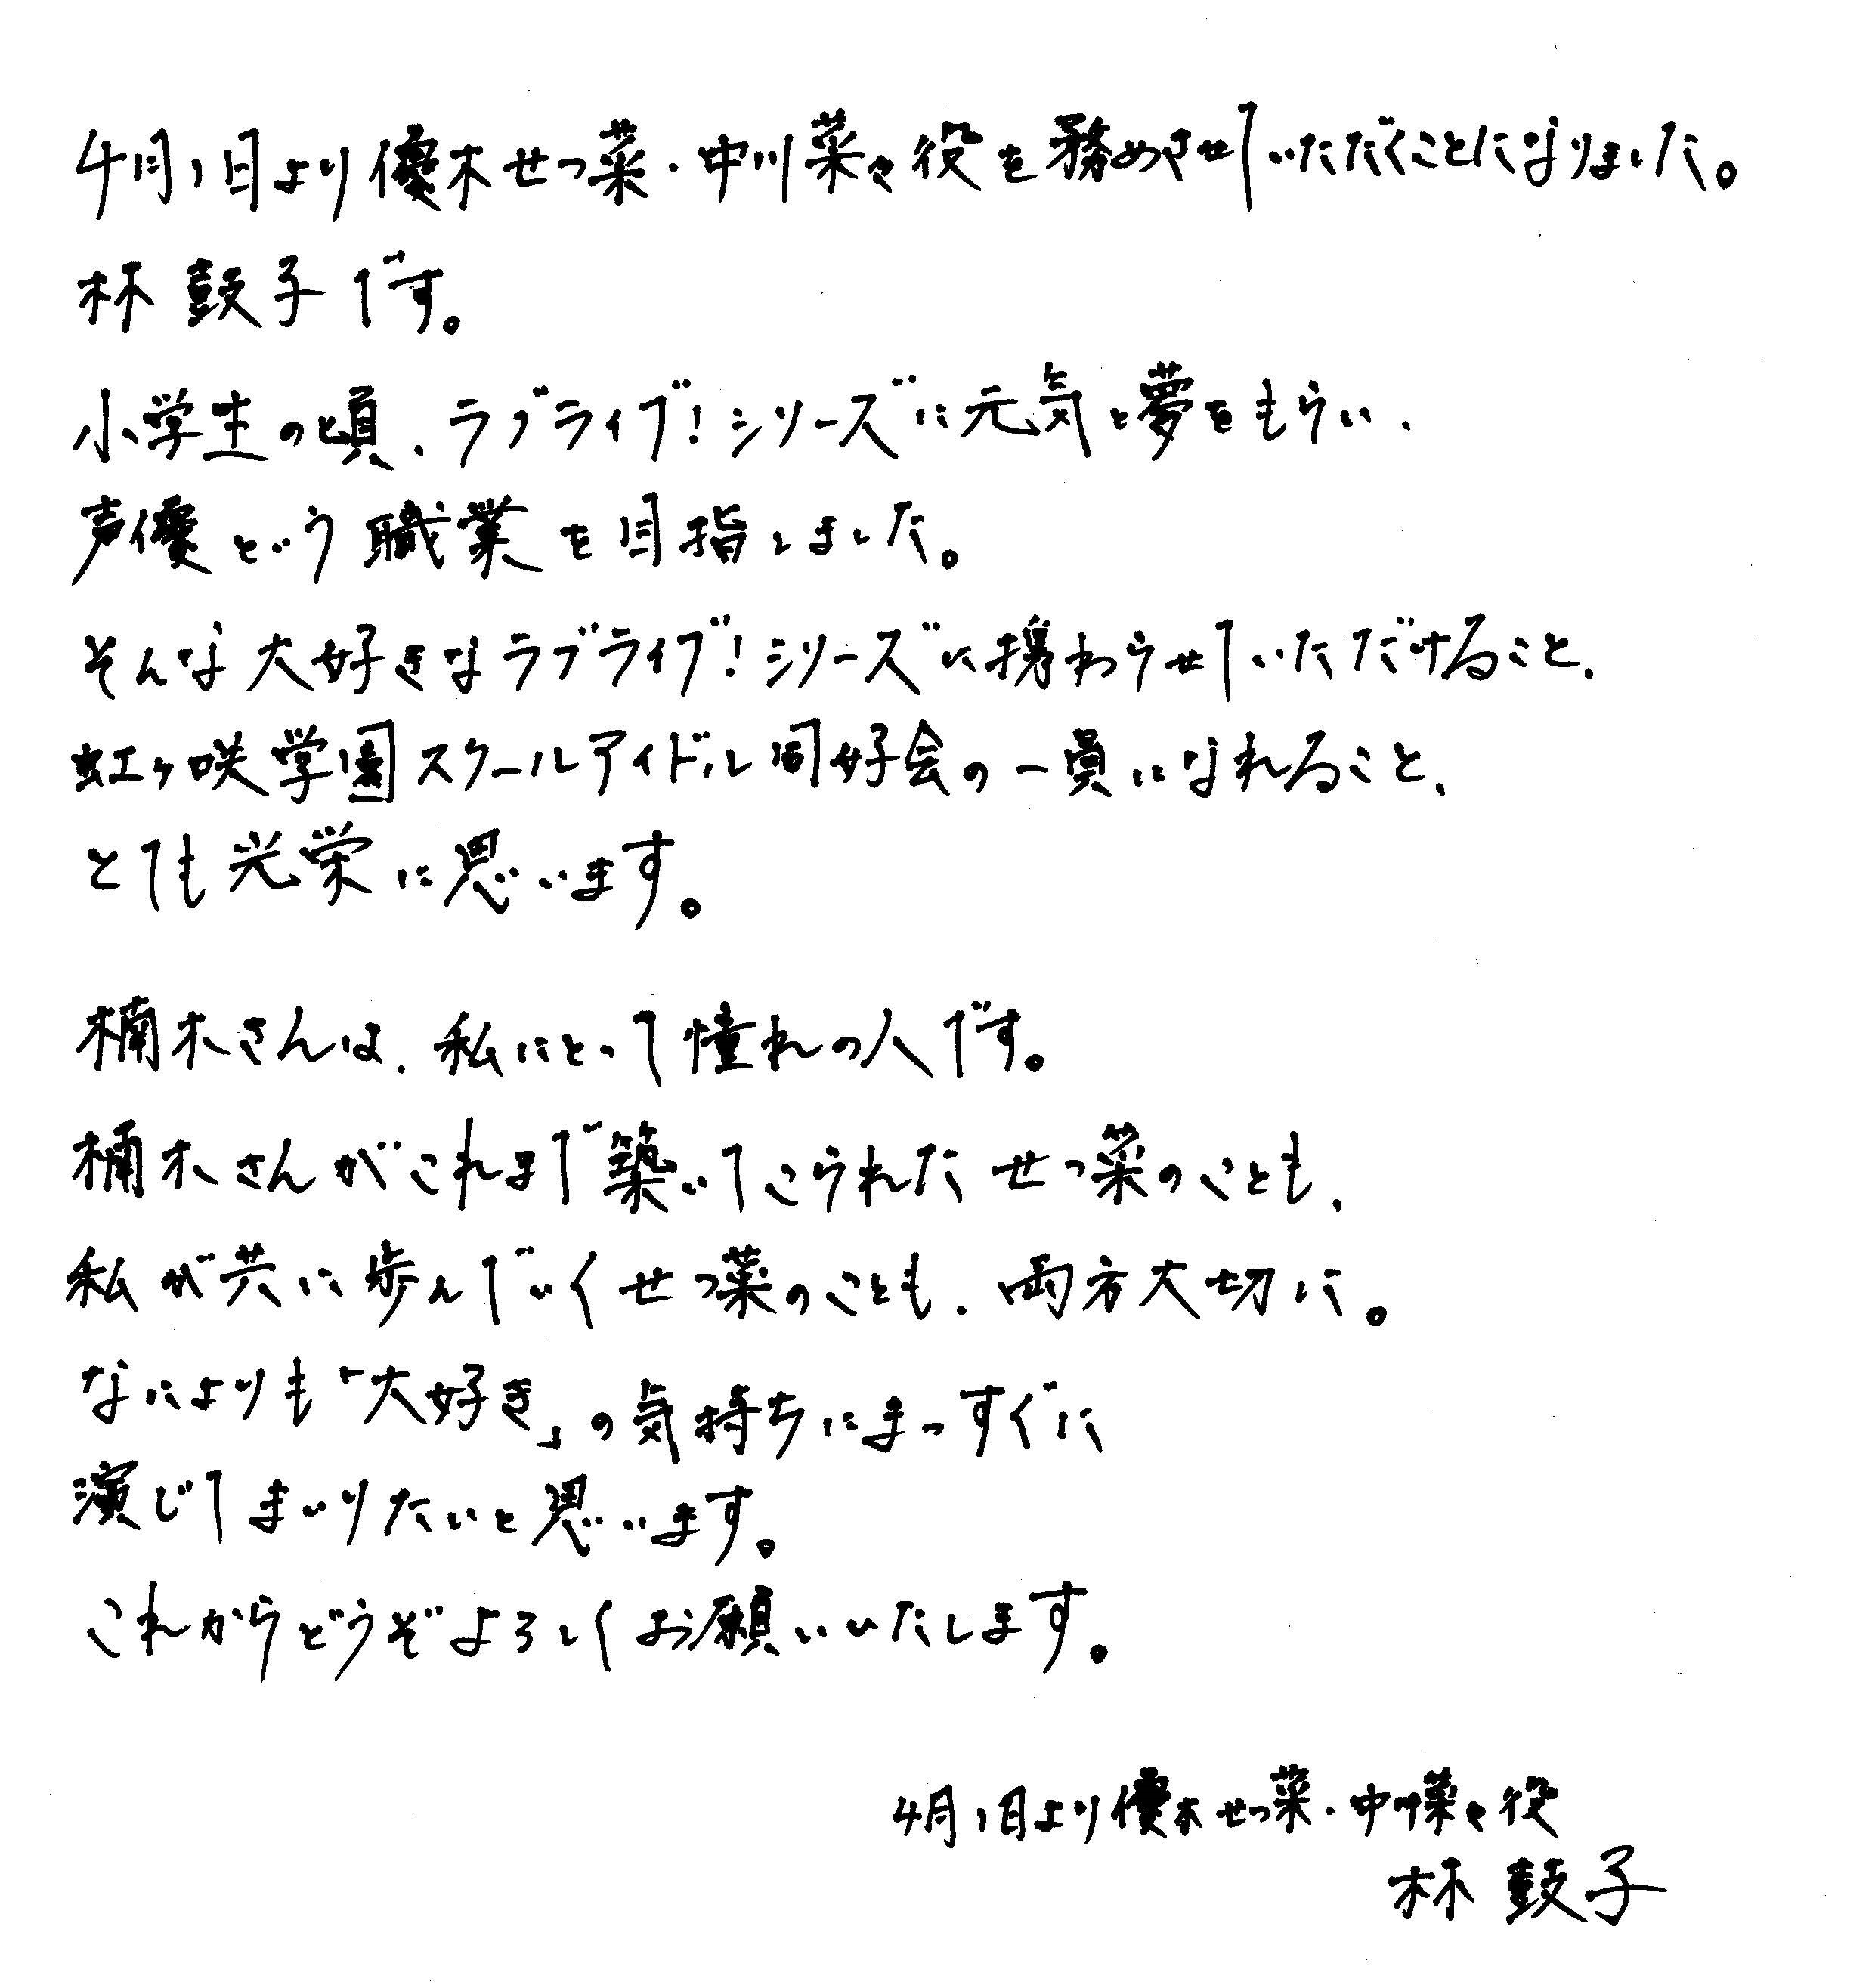 4月1日より優木せつ菜・中川菜々役を務めさせていただくことになりました。
林 鼓子です。
小学生の頃、ラブライブ！シリーズに元気と夢をもらい、
声優という職業を目指しました。
そんな大好きなラブライブ！シリーズに携わらせていただけること、
虹ヶ咲学園スクールアイドル同好会の一員になれること、
とても光栄に思います。
楠木さんは、私にとって憧れの人です。
楠木さんがこれまで築いてこられたせつ菜のことも、
私が共に歩んでいくせつ菜のことも、両方大切に。
なによりも「大好き」の気持ちにまっすぐに
演じてまいりたいと思います。
これからどうぞよろしくお願いいたします。
4月1日より優木せつ菜・中川菜々役
林 鼓子